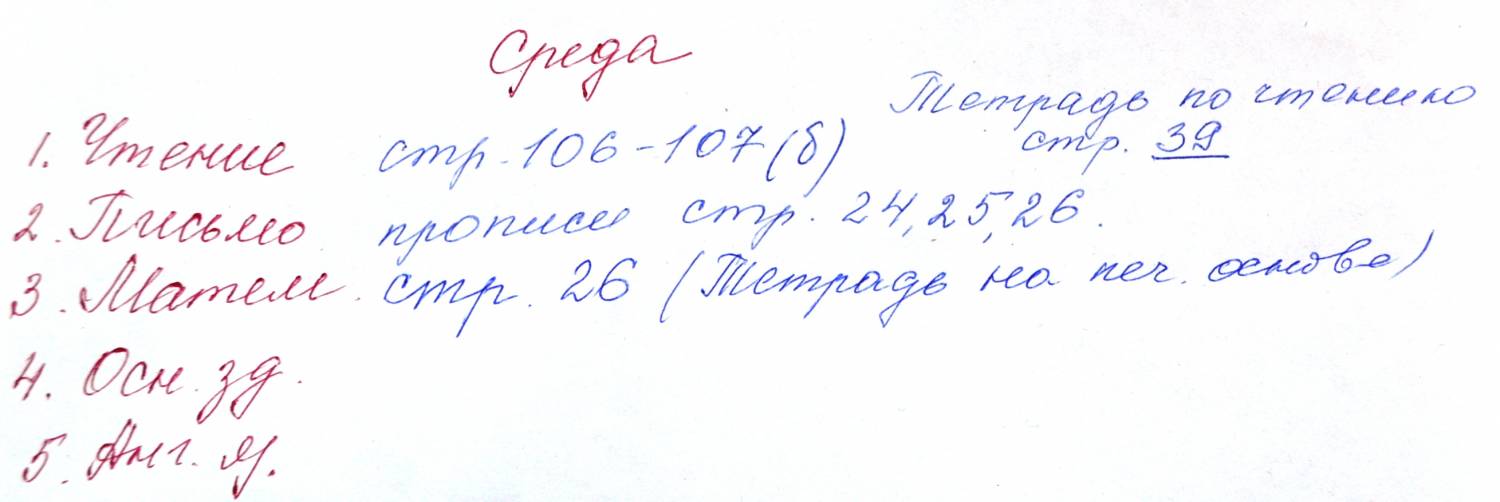 Среда
1. Чтение стр. 106-107 (б) Тетрадь по чтению
стр. 39
2. Письмо прописи стр. 24, 25, 26.
3. Матем. стр. 26 (Тетрадь на печ. основе)
4. Осн. зд.
5. Анг. я.